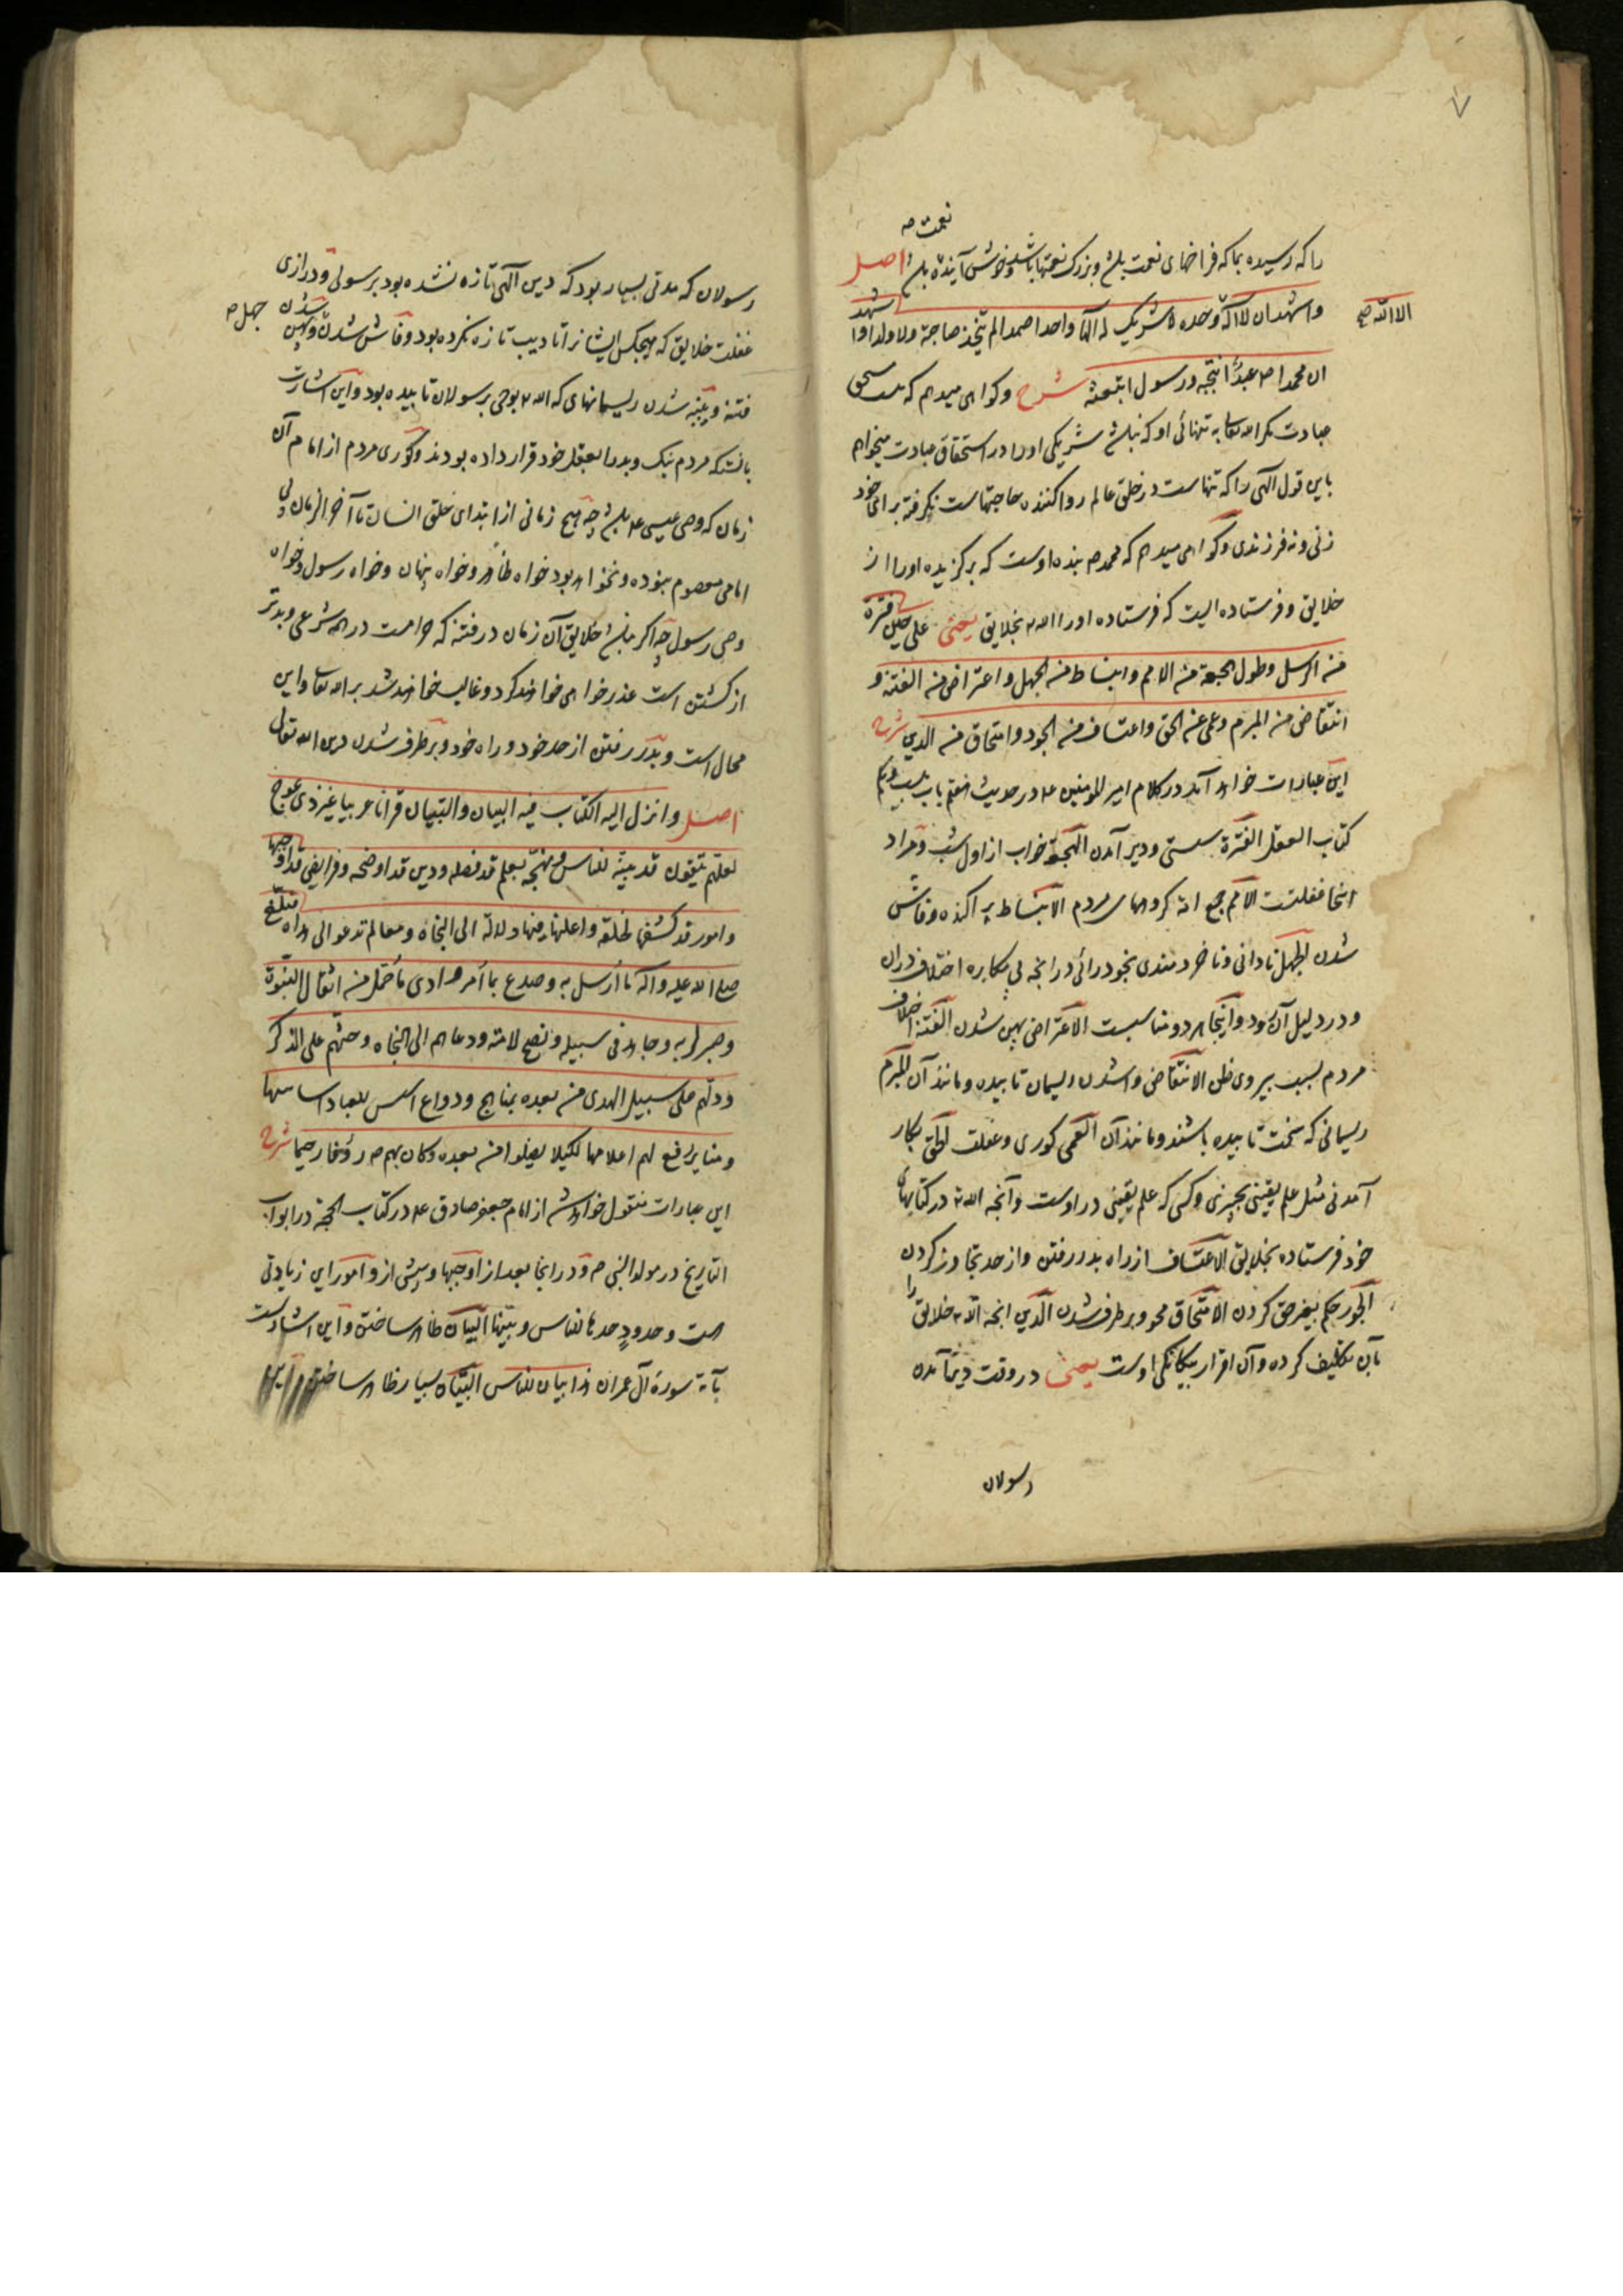 نعمت ص
را که رسیده بما که فراخهای نعمت باشد و بزرک نعمتها باشد و خوش آینده باشد اصل
واشهد ان لا اله وحده لا شریک له الها واحدا صمدا لم یتخذ صاحبة ولا ولدا و اشهد
الا الله صح
ان محمدا ص عبد انتجبه و رسول ابتعثه شرح و کواهی میدهم که نیست مستحق
عبادت مکر الله تعالی به تنهائی او که نباشد شریکی او را در استحقاق عبادت میخواهم
باین قول الهی را که تنهاست در خلق عالم روا کننده حاجتهاست نکرفته برای خود
زنی و نه فرزندی و کواهی میدهم که محمد ص بنده اوست که برکزیده او را از
خلایق و فرستاده ایست که فرستاده او را الله تع بخلایق یعنی علی حین فترة
من الرسل و طول الهجعة من الامم و انبساط من الجهل و اعتراض من الفتنة و
انتقاض من المبرم و عمی عن الحق و اعتساف من الجور و امتحاق من الدین شرح
این عبارات خواهد آمد در کلام امیر المومنین ع در حدیث هفتم باب بیست و یکم
کتاب العقل الفترة سستی و دیر آمدن الهجعة خواب از اول شب و مراد
اینجا غفلتست الامم جمع امة کروههای مردم الانبساط پراکنده و فاش
شدن الجهل نادانی و ناخردمندی بخودرائی در انچه بی مکابره اختلاف در ان
و در دلیل آن رود و اینجا هر دو مناسبست الاعتراض پهن شدن الفتنة اختلاف
مردم بسبب پیروی ظن الانتقاض وا شدن ریسمان تابیده و مانند آن المبرم
ریسمانی که سخت تابیده باشند و مانند آن العمی کوری و غفلت الحق بکار
آمدنی مثل علم یقینی بچیزی و کسی که علم یقینی در اوست و آنچه الله تع در کتابهای
خود فرستاده بخلایق الاعتساف از راه بدر رفتن و از حد تجاوز کردن
الجور حکم بغیر حق کردن الامتحاق محو و برطرف شدن الدین انچه الله تع خلایق را
بآن تکلیف کرده و آن اقرار بیکانکی اوست یعنی در وقت دیر آمدن
رسولان
رسولان که مدتی بسیار بود که دین الهی تازه نشده بود برسولی و درازی
غفلت خلایق که هیچکس ایشانرا تادیب تازه نکرده بود و فاش شدن جهل ص و پهن شدن
فتنه و پنبه شدن ریسمانهای که الله تع بوحی برسولان تابیده بود و این اشارتست
بانکه مردم نیک و بد را بعقل خود قرار داده بودند و کوری مردم از امام آن
زمان که وصی عیسی ع باشد چه هیچ زمانی از ابتدای خلق انسان تا آخر الزمان بی
امامی معصوم نبوده و نخواهد بود خواه ظاهر و خواه پنهان و خواه رسول و خواه
وصی رسول چه اکر نباشد خلایق آن زمان در فتنه که حرامست در همه شرعی و بدتر
از کشتن است عذر خواهی خواهند کرد و غالب خواهند شد بر الله تعالی و این
محال است و بدر رفتن از حد خود و راه خود و برطرف شدن دین الله تعالی
اصل و انزل الیه الکتاب فیه البیان و التبیان قرانا عربیا غیر ذی عوج
لعلهم یتقون قد بینه للناس و نهجه بعلم قد فصله و دین قد اوضحه و فرایض قد اوجبها
و امور قد کشفها لخلقه و اعلنها فیها دلالة الی النجاة و معالم تدعو الی هداه فبلغ
صلی الله علیه و اله ما ارسل به و صدع بما امر و ادی ما حمل من اثقال النبوة
و صبر لربه و جاهد فی سبیله و نصح لامته و دعاهم الی النجاة و حثهم علی الذکر
و دلهم علی سبیل الهدی من بعده بمناهج و دواع اسس للعباد اساسها
و منایر رفع لهم اعلامها لکیلا یضلوا من بعده و کان بهم ص رؤفا رحیما شرح
این عبارات منقول خواهد شد از امام جعفر صادق ع در کتاب الحجة در ابواب
التاریخ در مولد النبی ص و در انجا بعد از اوجبها و پیش از و امور این زیادتی
هست و حدود حدها للناس و بینها البیان ظاهر ساختن و این اشارتست
بآیة سورة آل عمران هذا بیان للناس التبیان بسیار ظاهر ساختن